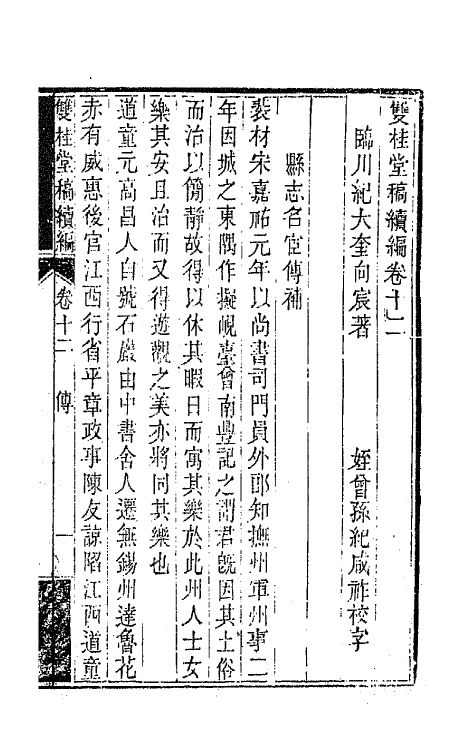 雙桂堂稿續編卷十二
臨川紀大奎向宸著　姪曾孫紀咸祚校字
縣志名宦傳補
裴材宋嘉祐元年以尚書司門員外郎知撫州軍州事二
年因城之東隅作擬峴臺曾南豐記之謂君旣因其土俗
而治以簡靜故得以休其暇日而寓其樂於此州人士女
樂其安且治而又得遊觀之美亦將同其樂也
道童元高昌人自號石巖由中書舍人遷無錫州達魯花
赤有威惠後官江西行省平章政事陳友諒陷江西道童
雙桂堂稿續編　卷十二　傳　一